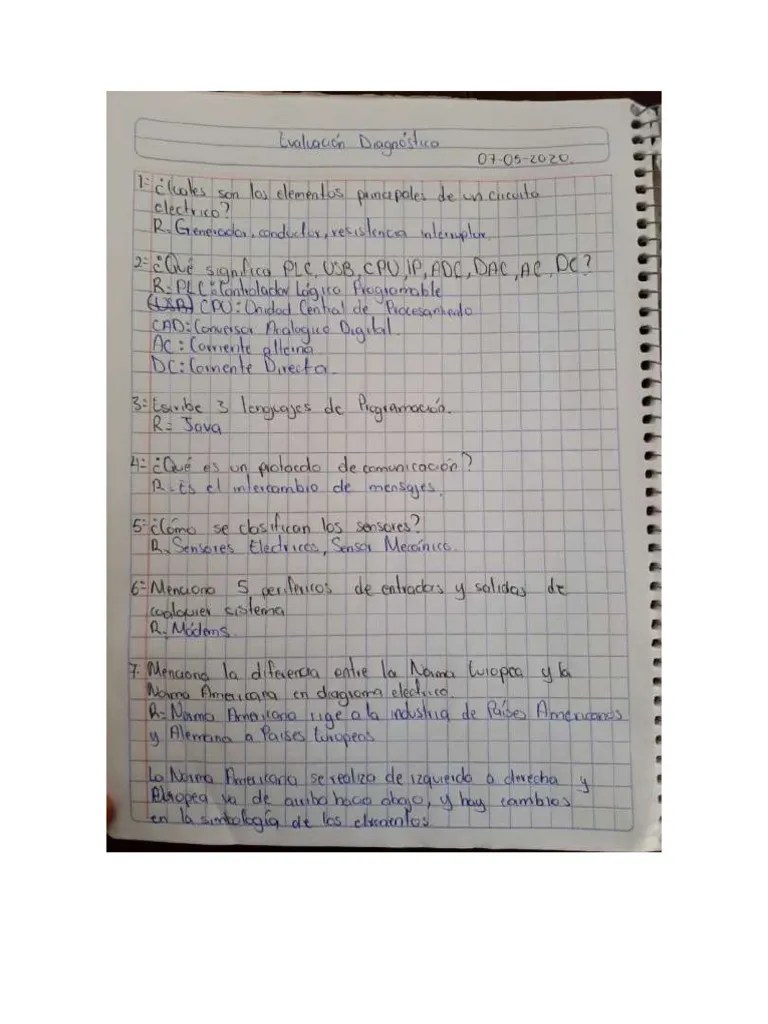 Evaluación Diagnóstica
07-05-2020.
1= ¿Cuales son los elementos principales de un circuito
electrico?
R= Generador, conductor, resistencia interruptor.
2= ¿Qué significa PLC, USB, CPU, IP, ADC, DAC, AC, DC?
R= PLC: Controlador Lógico Programable
(USB) CPU: Unidad Central de Procesamiento
CAD: Conversor Analogico Digital.
AC: Corriente alterna
DC: Corriente Directa.
3= Escribe 3 lenguajes de Programación.
R= Java
4= ¿Qué es un protocolo de comunicación?
R= Es el intercambio de mensajes.
5= ¿Cómo se clasifican los sensores?
R. Sensores Electricos, Sensor Mecánico.
6= Menciona 5 perifericos de entradas y salidas de
cualquier sistema
R. Módems.
7. Menciona la diferencia entre la Norma Europea y la
Norma Americana en diagrama electrico.
R= Norma Americana rige a la industria de Países Americanos
y Alemana a Países Europeos
La Norma Americana se realiza de izquierda a derecha y
Europea va de arriba hacia abajo, y hay cambios
en la simbología de los elementos